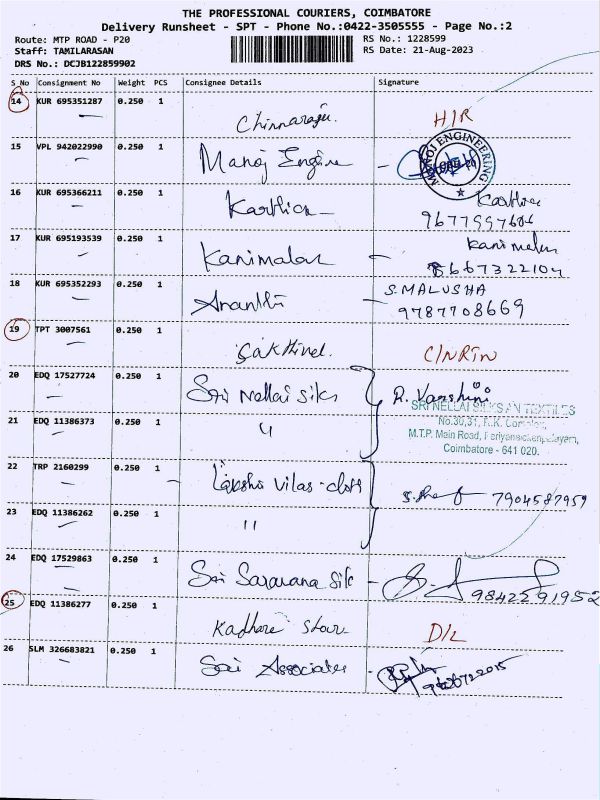 THE PROFESSIONAL COURIERS, COIMBATORE
Delivery Runsheet - SPT - Phone No.:0422-3505555 - Page No.:2
Route: MTP ROAD - P20
RS No.: 1228599
Staff: TAMILARASAN
RS Date: 21-Aug-2023
DRS No.: DCJB122859902
S No Consignment No Weight PCS Consignee Details Signature
14 KUR 695351287 0.250 1
Chinnaraju. H/R
15 VPL 942022990 0.250 1
Manoj Engine - MANOJ ENGINEERING
16 KUR 695366211 0.250 1
Karthica - Karthica
17 KUR 695193539 0.250 1
Kanimalar Kanimalar
8667322104
18 KUR 695352293 0.250 1
Ananthi - S.MALUSHA
9787708669
19 TPT 3007561 0.250 1
Sakthivel. C/NRTN
20 EDQ 17527724 0.250 1
Sri Nellai silks R. Varshini
SRI NELLAI SILKS AN TEXTILES
21 EDQ 11386373 0.250 1
" No.30,31, R.K. Complex,
M.T.P. Main Road, Periyanaickenpalayam,
Coimbatore - 641 020.
22 TRP 2160299 0.250 1
Vilas - 7904587959
23 EDQ 11386262 0.250 1
"
24 EDQ 17529863 0.250 1
Sri Saravana Silk - 9842591952
25 EDQ 11386277 0.250 1
Kadhare Stour D/L
26 SLM 326683821 0.250 1
Sai Associates -